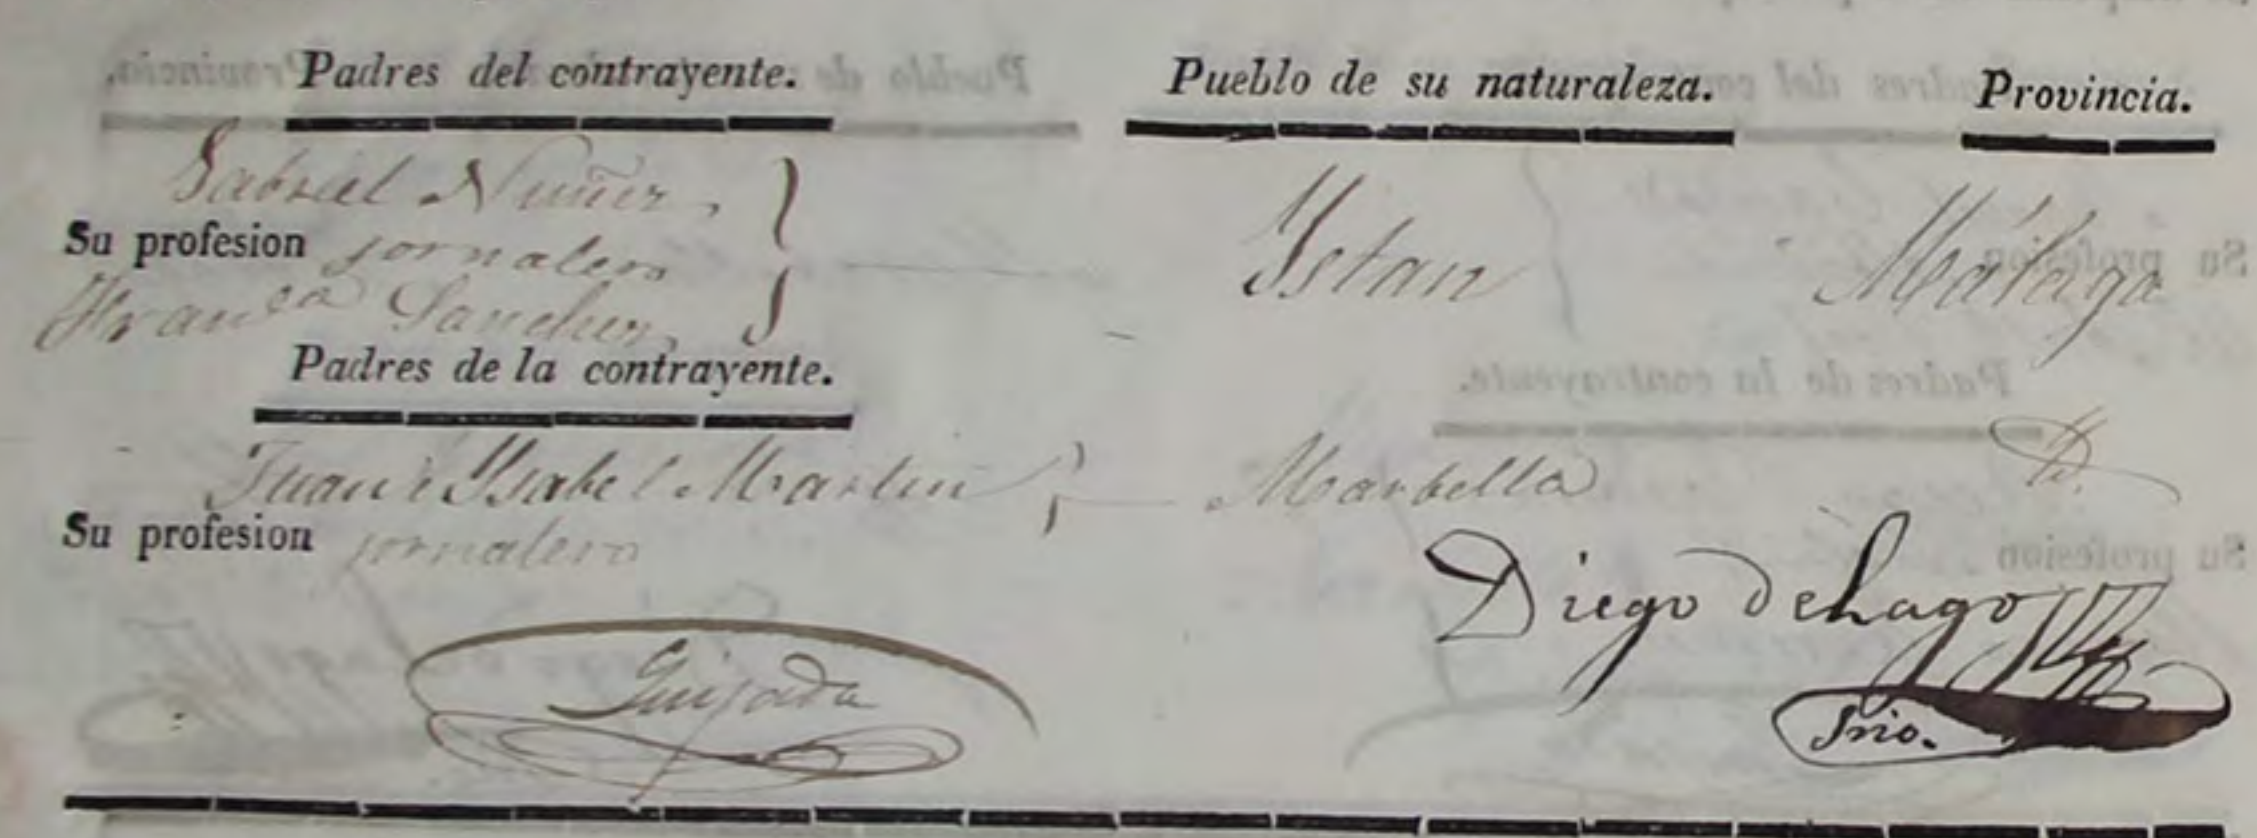 Padres del contrayente. Pueblo de su naturaleza. Provincia.
Gabriel Nuñez,
Su profesion jornalero Istan Málaga
Fran.ca Sanchez,
Padres de la contrayente.
Juan é Ysabel Martin Marbella Yd.
Su profesion jornalero
Diego de Lago
Quijada
Srio.